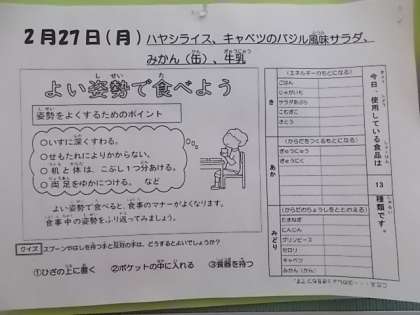 2月27日(月) ハヤシライス、キャベツのバジル風味サラダ、
みかん(缶)、牛乳
よい姿勢で食べよう
姿勢をよくするためのポイント
○いすに深くすわる。
○せもたれによりかからない。
○机と体は、こぶし1つ分あける。
○両足をゆかにつける。 など
よい姿勢で食べると、食事のマナーがよくなります。
食事中の姿勢をふり返ってみましょう。
クイズ スプーンやはしを持つ手と反対の手は、どうするとよいでしょうか?
①ひざの上に置く ②ポケットの中に入れる ③食器を持つ
今日、使用している食品は
13
種類です。
き
(エネルギーのもとになる)
ごはん
じゃがいも
サラダあぶら
こむぎこ
さとう
あか
(からだをつくるもとになる)
ぎゅうにゅう
ぎゅうにく
みどり
(からだのちょうしをととのえる)
たまねぎ
にんじん
グリンピース
セロリ
キャベツ
みかん(かん)